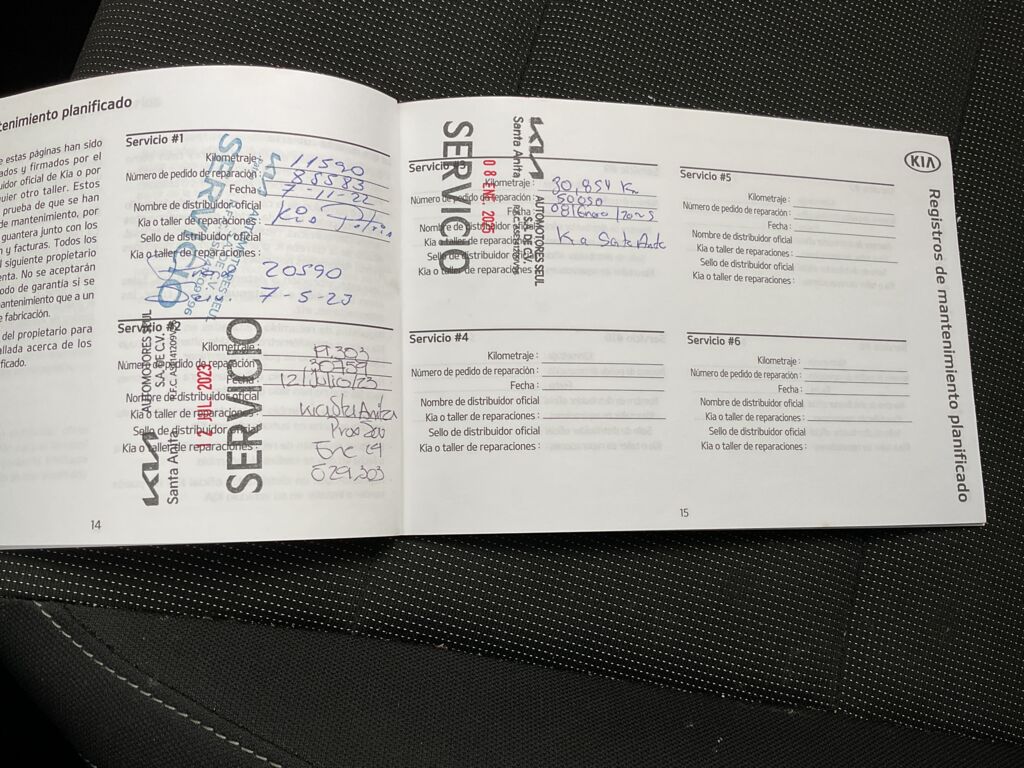 tenimiento planificado
e estas páginas han sido
ados y firmados por el
uidor oficial de Kia o por
quier otro taller. Estos
prueba de que se han
de mantenimiento, por
guantera junto con los
n y facturas. Todos los
l siguiente propietario
enta. No se aceptarán
odo de garantía si se
mantenimiento que a un
e fabricación.
del propietario para
allada acerca de los
ficado.
Servicio #1
Kilometraje: 11590
Número de pedido de reparación: 85583
Fecha: 7-11-22
Nombre de distribuidor oficial
Kia o taller de reparaciones:
Sello de distribuidor oficial
Kia o taller de reparaciones:
SERVICIO
AUTOMOTORES SEUL
20590
7-5-2J
Servicio #2
Kilometraje: 19,303
Número de pedido de reparación: 30959
Fecha: 12/Julio/23
Nombre de distribuidor oficial
Kia o taller de reparaciones: Kia Sta Anita
Sello de distribuidor oficial
Kia o taller de reparaciones:
Prox Ser
Ene 24
ó 29,303
KIA
Santa Anita
AUTOMOTORES SEUL
S.A. DE C.V.
12 JUL 2023
SERVICIO
14
Servicio #3
Kilometraje: 30,854 Km
Número de pedido de reparación: 50050
Fecha: 08/Enero/2025
Nombre de distribuidor oficial
Kia o taller de reparaciones: Kia Santa Anita
Sello de distribuidor oficial
Kia o taller de reparaciones:
SERVICIO
08 ENE. 2025
KIA
Santa Anita
AUTOMOTORES SEUL
S.A. DE C.V.
Servicio #4
Kilometraje:
Número de pedido de reparación:
Fecha:
Nombre de distribuidor oficial
Kia o taller de reparaciones:
Sello de distribuidor oficial
Kia o taller de reparaciones:
Servicio #5
Kilometraje:
Número de pedido de reparación:
Fecha:
Nombre de distribuidor oficial
Kia o taller de reparaciones:
Sello de distribuidor oficial
Kia o taller de reparaciones:
Servicio #6
Kilometraje:
Número de pedido de reparación:
Fecha:
Nombre de distribuidor oficial
Kia o taller de reparaciones:
Sello de distribuidor oficial
Kia o taller de reparaciones:
KIA
Registros de mantenimiento planificado
15